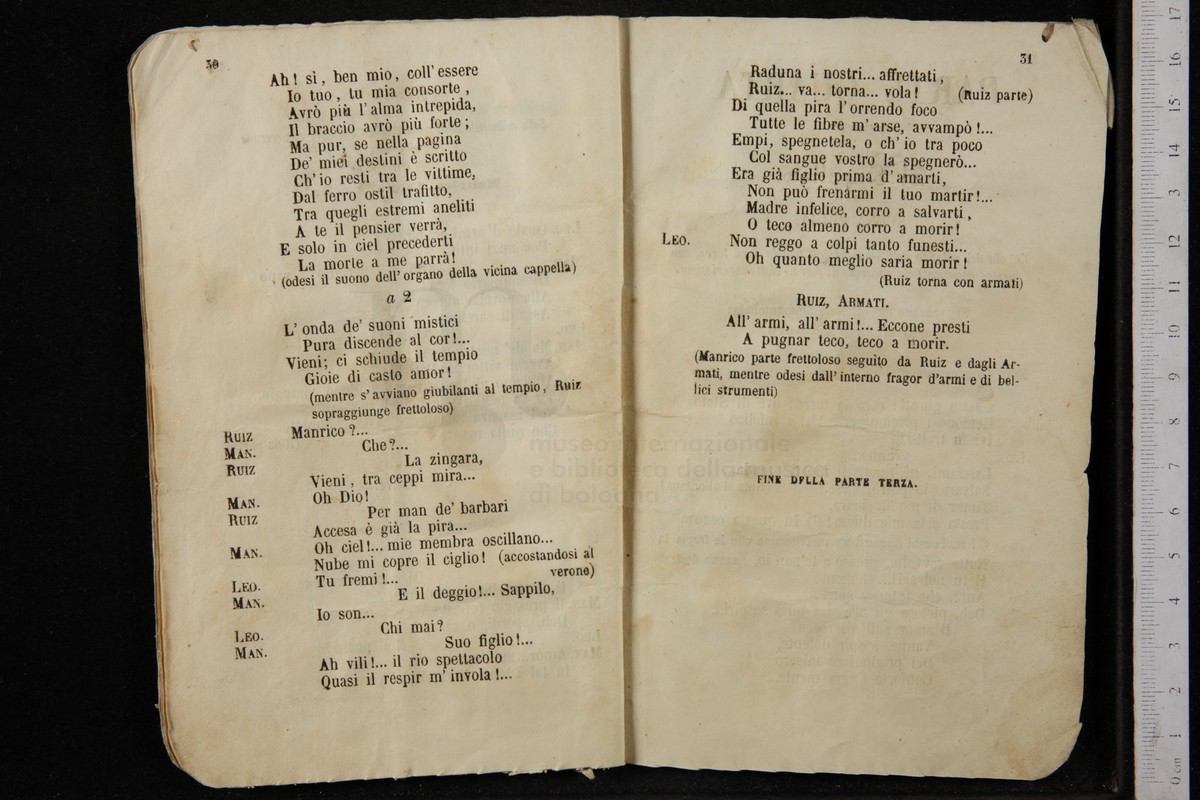 30
Ah! sì, ben mio, coll' essere
Io tuo, tu mia consorte,
Avrò più l'alma intrepida,
Il braccio avrò più forte;
Ma pur, se nella pagina
De' miei destini è scritto
Ch'io resti tra le vittime,
Dal ferro ostil trafitto,
Tra quegli estremi aneliti
A te il pensier verrà,
E solo in ciel precederti
La morte a me parrà!
(odesi il suono dell' organo della vicina cappella)
a 2
L' onda de' suoni mistici
Pura discende al cor!...
Vieni; ci schiude il tempio
Gioie di casto amor!
(mentre s'avviano giubilanti al tempio, Ruiz
sopraggiunge frettoloso)
Ruiz Manrico?...
Man. Che?...
Ruiz La zingara,
Vieni, tra ceppi mira...
Man. Oh Dio!
Ruiz Per man de' barbari
Accesa è già la pira...
Man. Oh ciel!... mie membra oscillano...
Nube mi copre il ciglio! (accostandosi al
verone)
Leo. Tu fremi!...
Man. E il deggio!... Sappilo,
Io son...
Leo. Chi mai?
Man. Suo figlio!...
Ah vili!... il rio spettacolo
Quasi il respir m'invola!...
31
Raduna i nostri... affrettati,
Ruiz... va... torna... vola! (Ruiz parte)
Di quella pira l'orrendo foco
Tutte le fibre m'arse, avvampò!...
Empi, spegnetela, o ch'io tra poco
Col sangue vostro la spegnerò...
Era già figlio prima d'amarti,
Non può frenarmi il tuo martir!...
Madre infelice, corro a salvarti,
O teco almeno corro a morir!
Leo. Non reggo a colpi tanto funesti...
Oh quanto meglio saria morir!
(Ruiz torna con armati)
Ruiz, Armati.
All' armi, all' armi!... Eccone presti
A pugnar teco, teco a morir.
(Manrico parte frettoloso seguito da Ruiz e dagli Ar-
mati, mentre odesi dall' interno fragor d'armi e di bel-
lici strumenti)
FINE DELLA PARTE TERZA.
museo internazionale
e biblioteca della musica
di bologna
17
16
15
14
13
12
11
10
9
8
7
6
5
4
3
2
1
0 cm